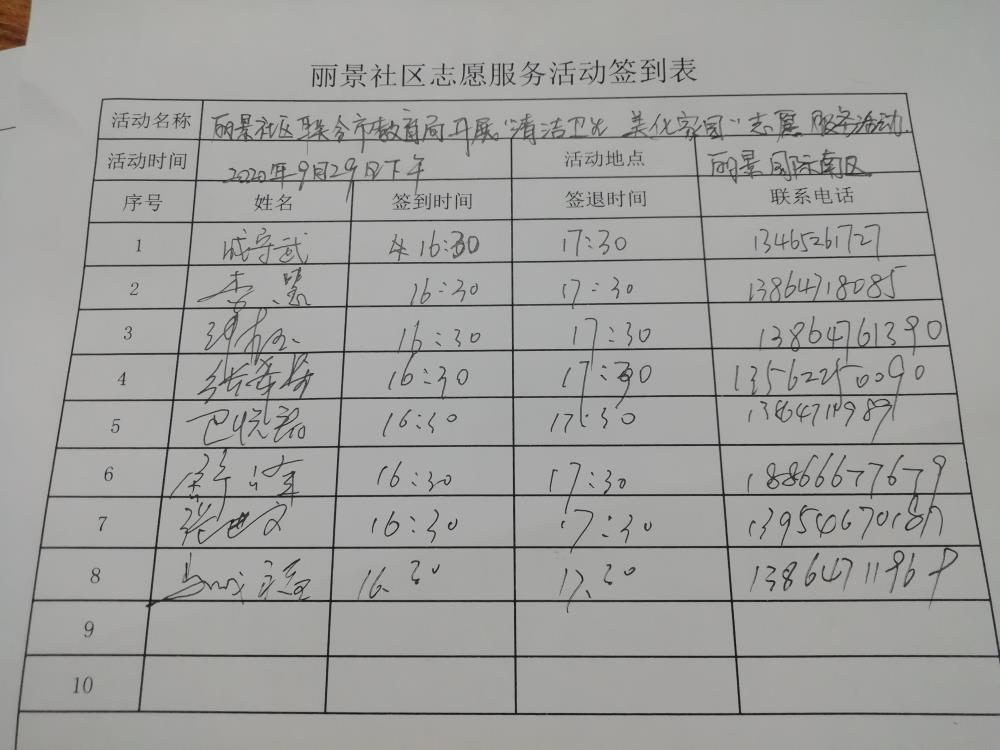 丽景社区志愿服务活动签到表
活动名称 丽景社区联合市教育局开展"清洁卫生 美化家园"志愿服务活动
活动时间 2020年9月29日下午 活动地点 丽景国际南区
序号 姓名 签到时间 签退时间 联系电话
1 成守武 16:30 17:30 13465261727
2 16:30 17:30 13864718085
3 16:30 17:30 13864761390
4 16:30 17:30 13562250090
5 16:30 17:30
6 16:30 17:30 18866677679
7 张世文 16:30 17:30
8 16.30 17.30
9
10